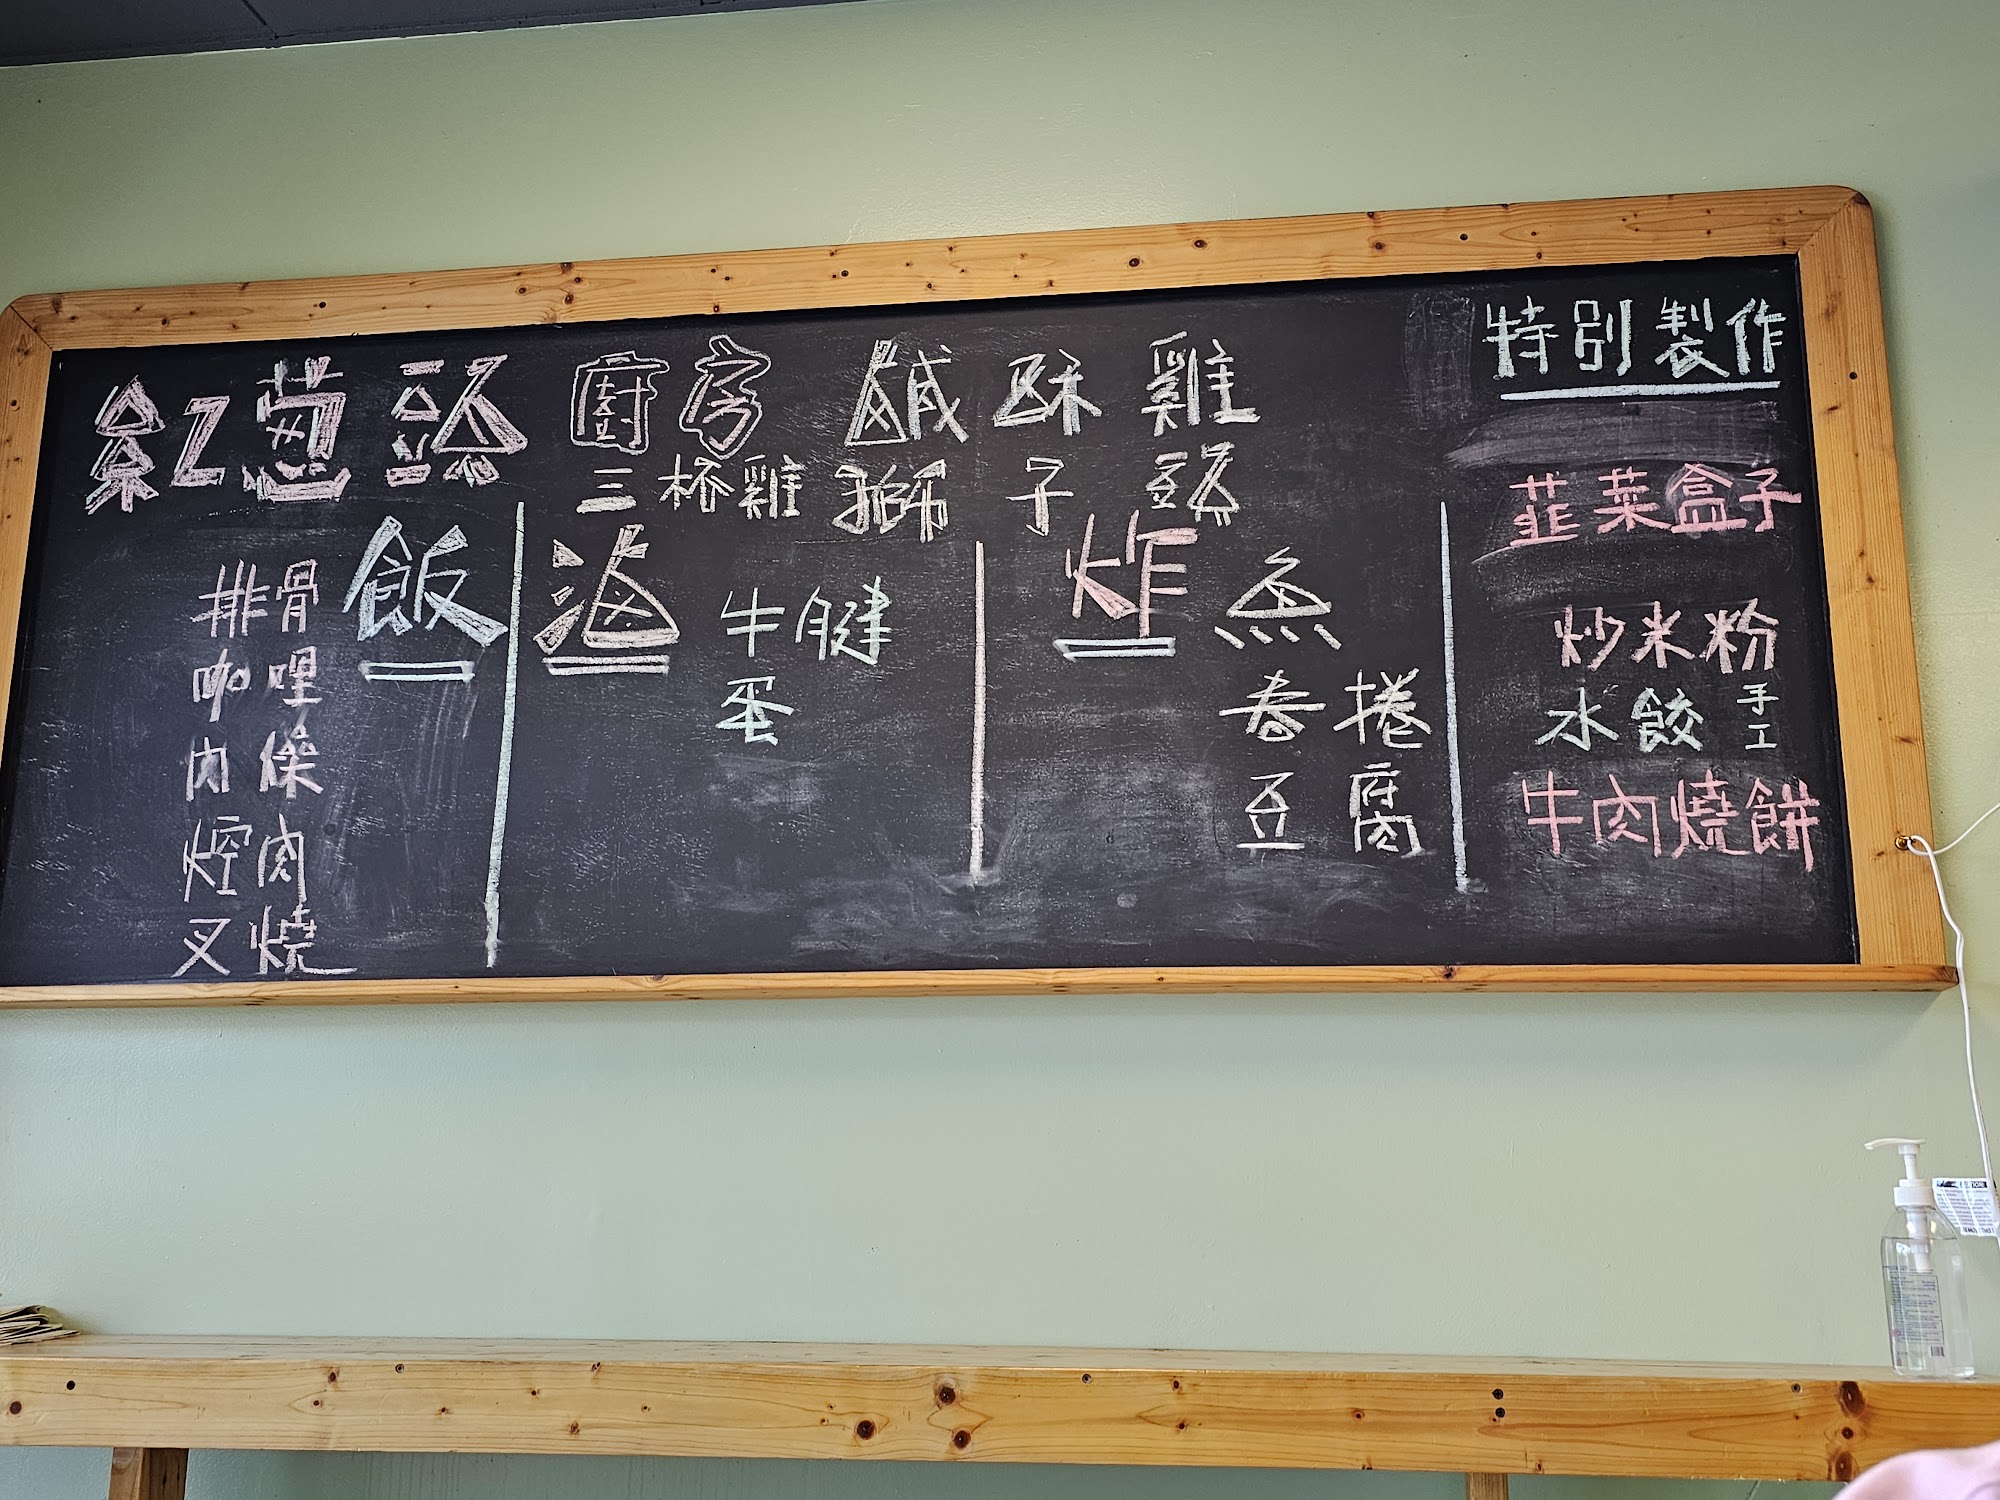 紅蔥頭 廚房 鹹酥雞
三杯雞 獅子頭
飯
排骨
咖哩
肉燥
焢肉
叉燒
滷
牛腱
蛋
炸
魚
春捲
豆腐
特別製作
韮菜盒子
炒米粉
水餃 手工
牛肉燒餅